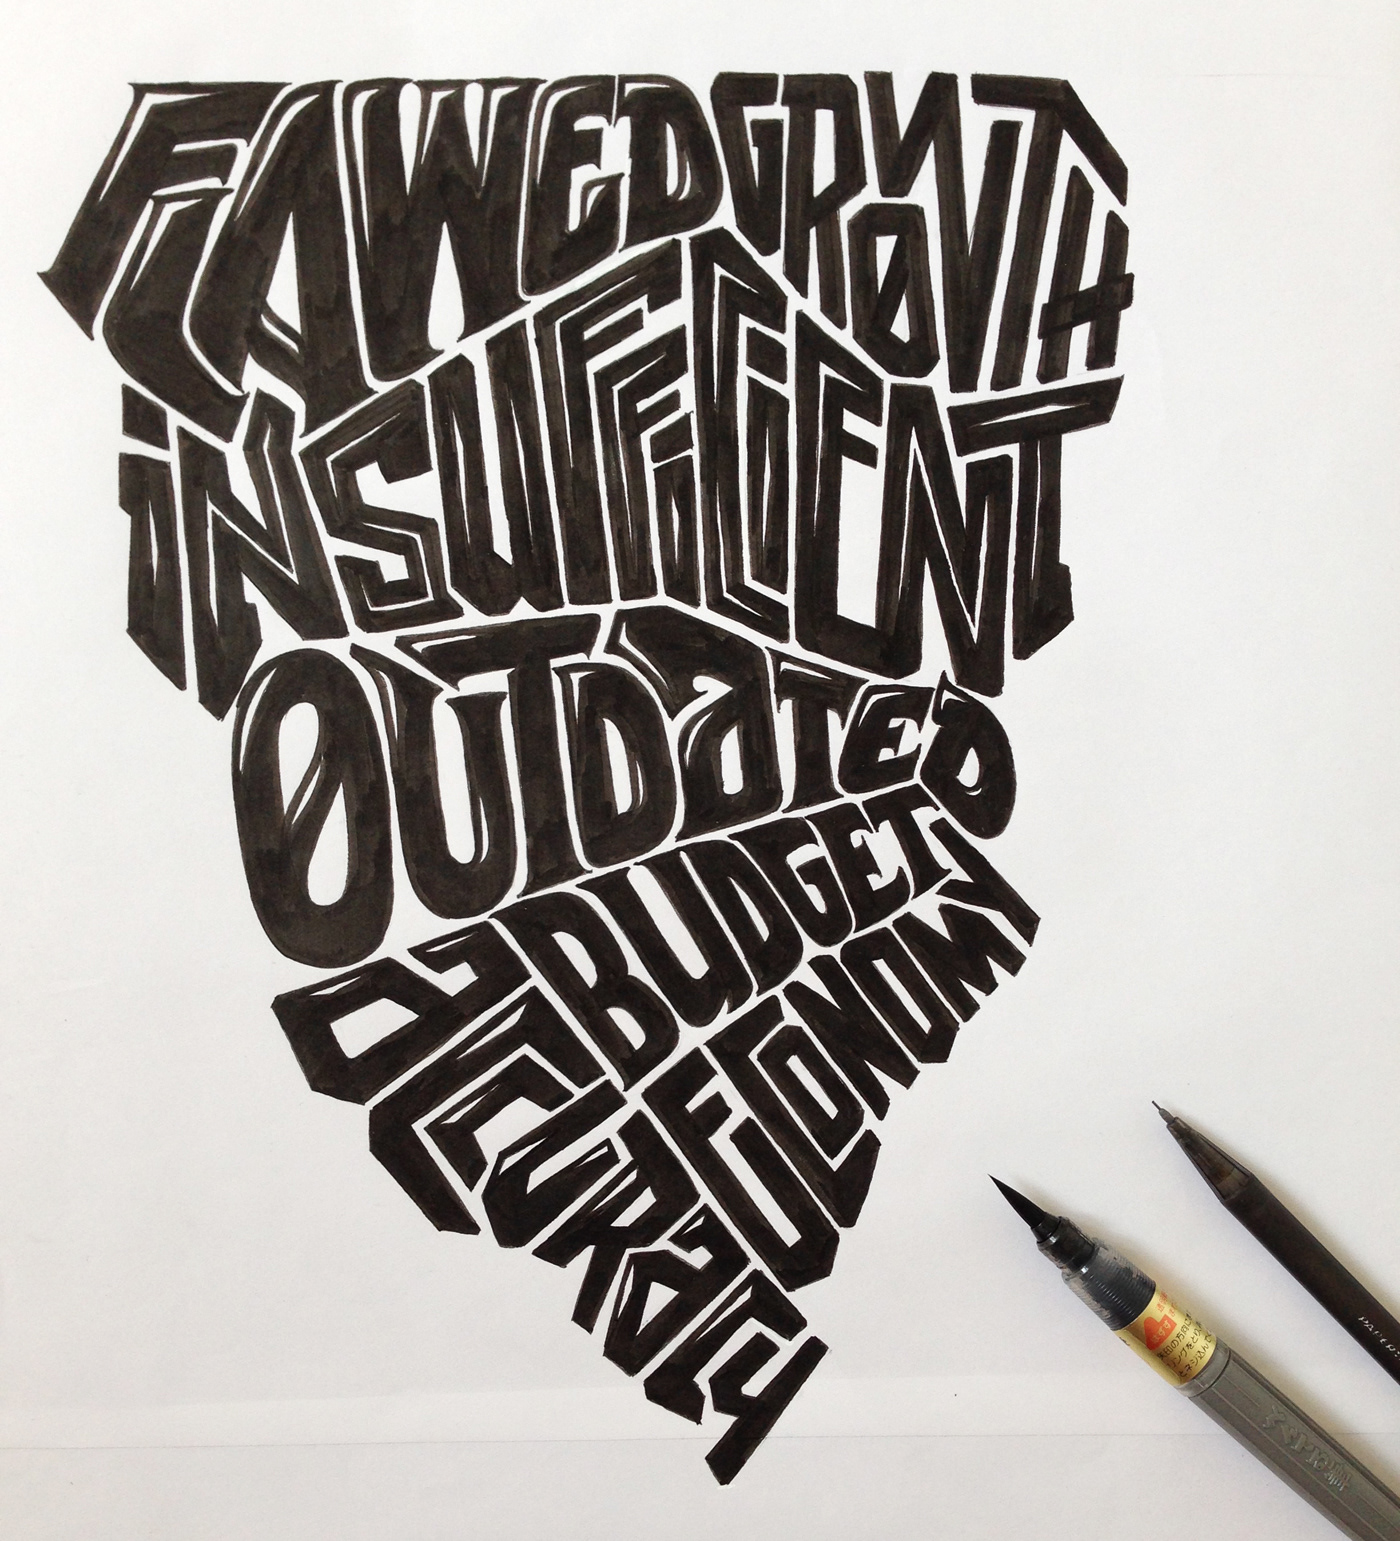 FLAWED GROWTH
iNSUFFiCiENT
OUTDaTED
BUDGET
ECONOMY
aCCURaCY
PAPER